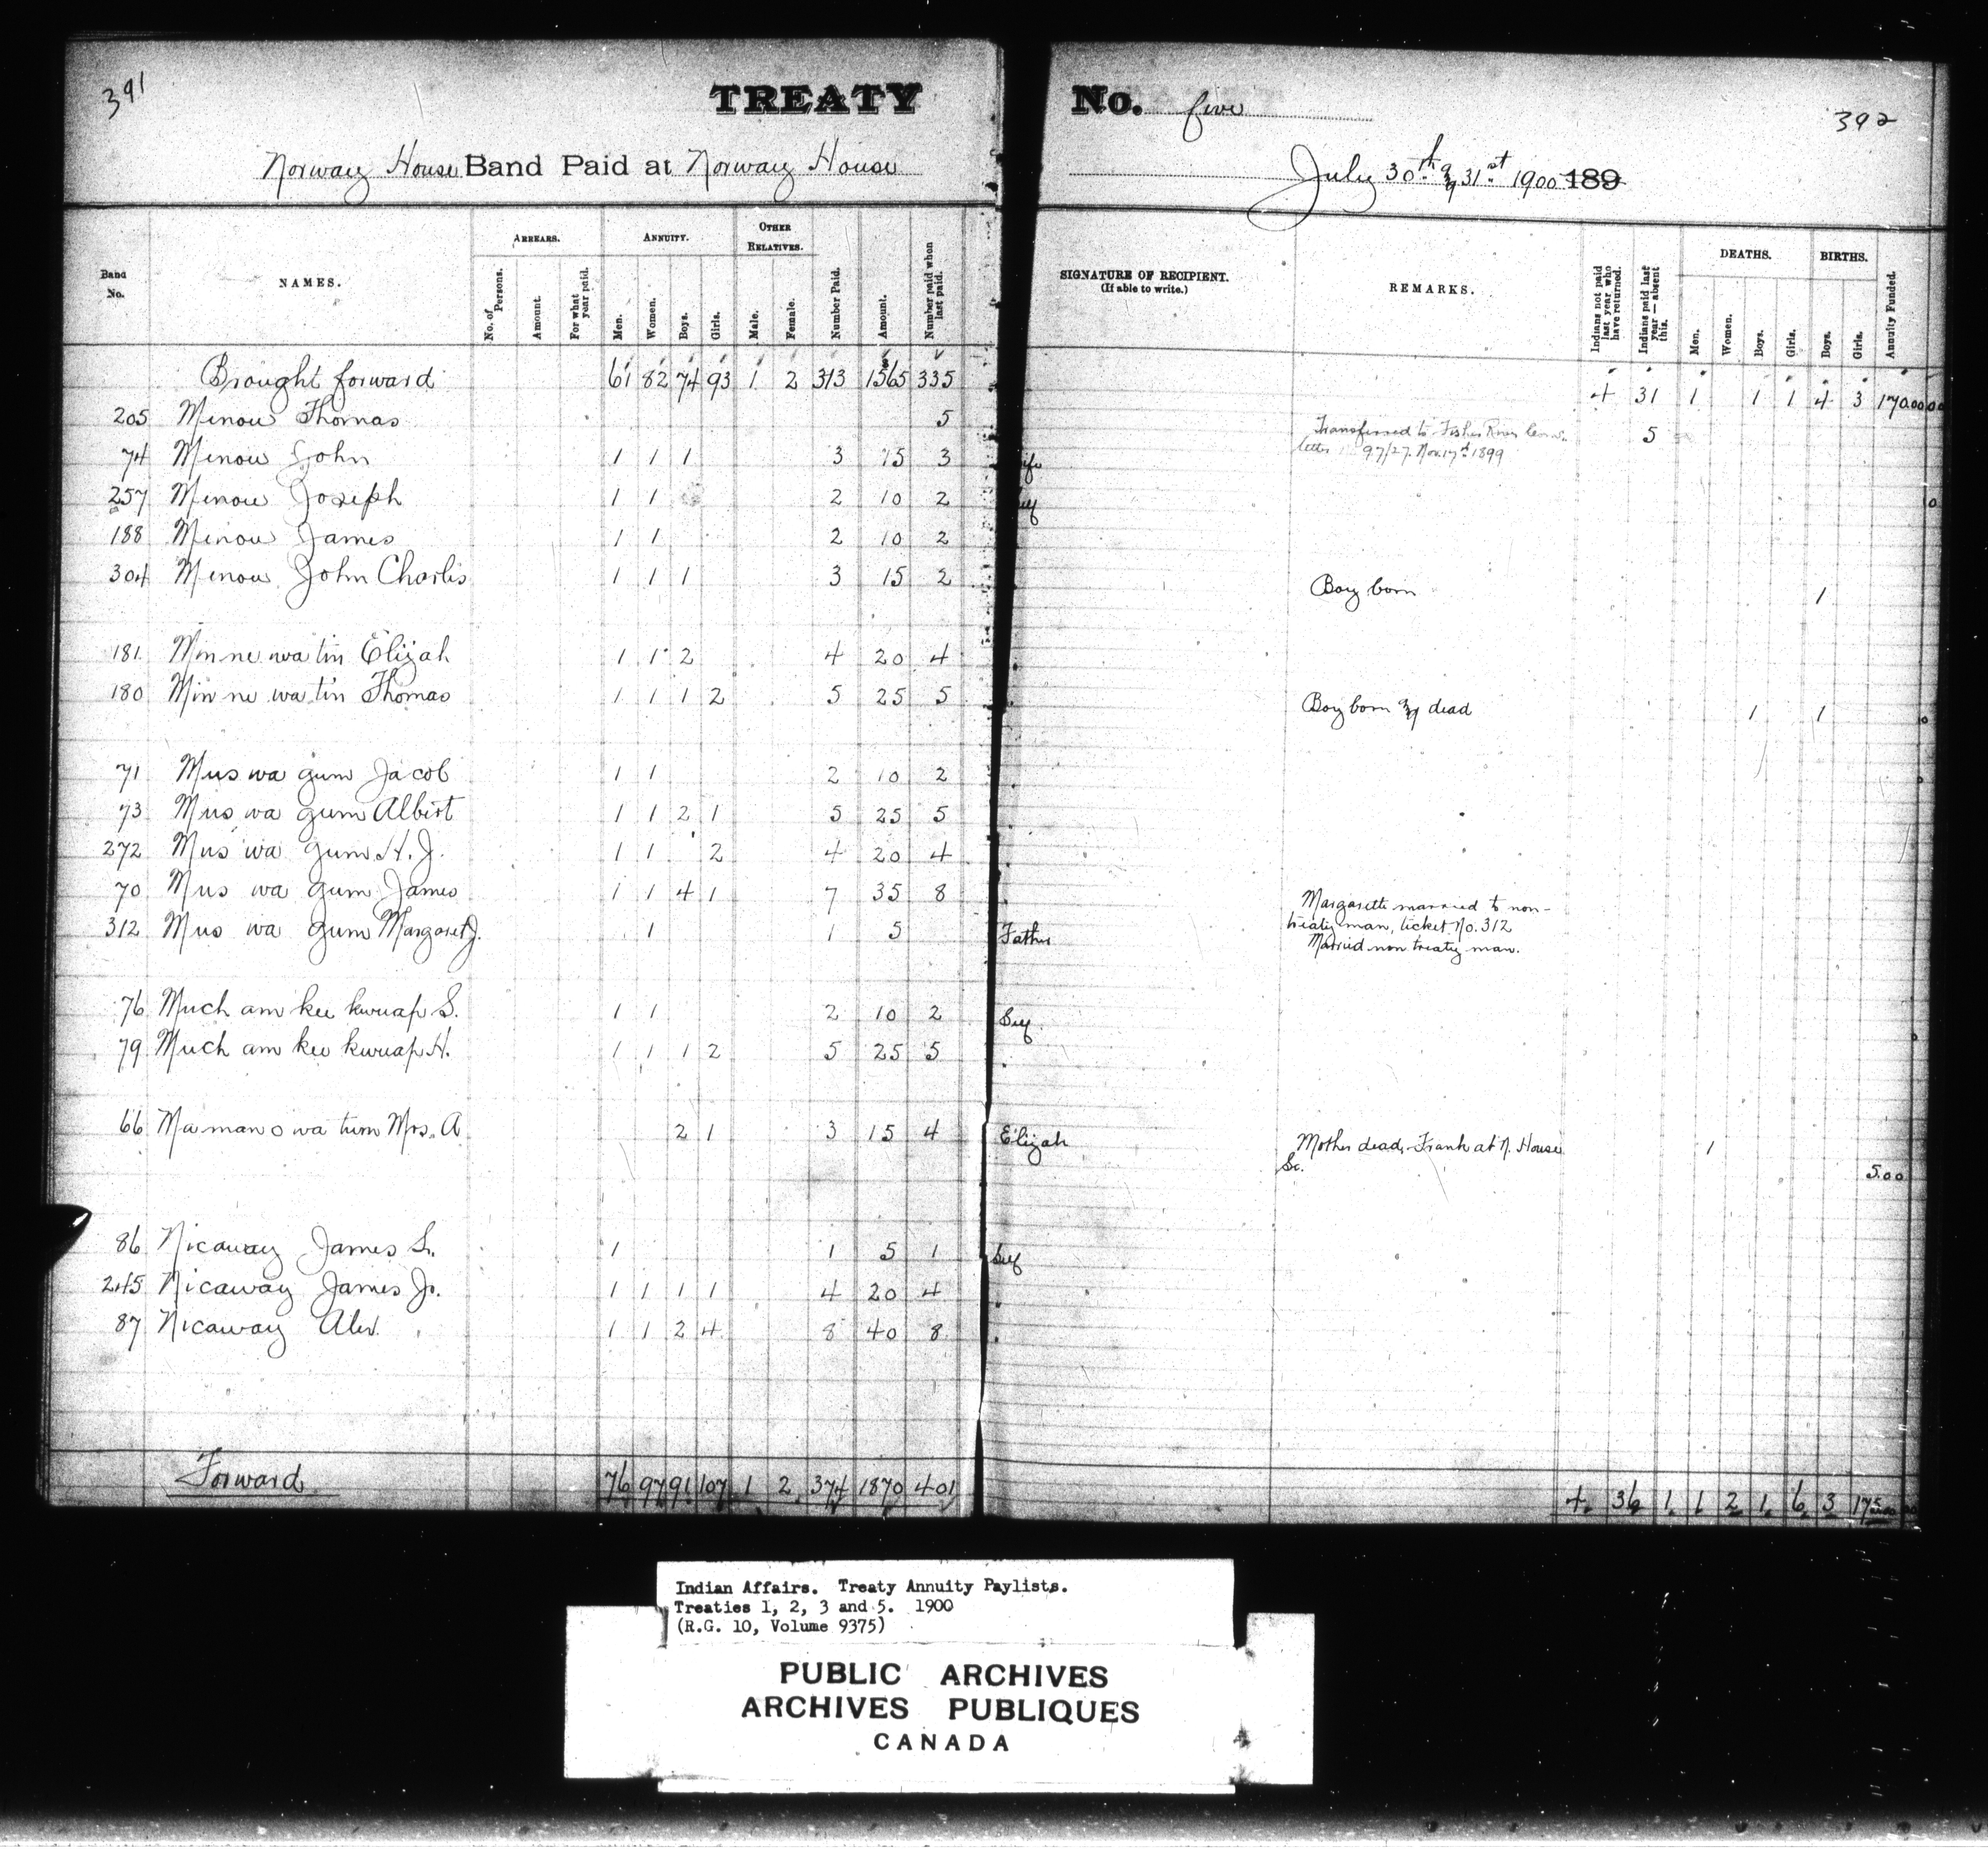 391
TREATY No. five
392
Norway House Band Paid at Norway House
July 30th & 31st 1900 189
Band No.
NAMES.
ARREARS.
No. of Persons.
Amount.
For what year paid.
ANNUITY.
Men.
Women.
Boys.
Girls.
OTHER RELATIVES.
Male.
Female.
Number Paid.
Amount.
Number paid when last paid.
SIGNATURE OF RECIPIENT.
(If able to write.)
REMARKS.
Indians not paid last year who have returned.
Indians paid last year — absent this.
DEATHS.
Men.
Women.
Boys.
Girls.
BIRTHS.
Boys.
Girls.
Annuity Funded.
Brought forward 61 82 74 93 1 2 313 1565 335 4 31 1 1 1 4 3 170.00
205 Menow Thomas 5 Transferred to Fisher River 5
letter 97/27. Nov. 17th 1899
74 Menow John 1 1 1 3 15 3
257 Menow Joseph 1 1 2 10 2
188 Menow James 1 1 2 10 2
304 Menow John Charles 1 1 1 3 15 2 Boy born 1
181 Min ne wa tin Elijah 1 1 2 4 20 4
180 Min ne wa tin Thomas 1 1 1 2 5 25 5 Boy born & dead 1 1
71 Mus wa gum Jacob 1 1 2 10 2
73 Mus wa gum Albert 1 1 2 1 5 25 5
272 Mus wa gum H. J. 1 1 2 4 20 4
70 Mus wa gum James 1 1 4 1 7 35 8 Margarette married to non-
treaty man, ticket No. 312
312 Mus wa gum Margaret J. 1 1 5 Father Married non treaty man.
76 Much am kee kwuap S. 1 1 2 10 2 Self
79 Much am kee kwuap H. 1 1 1 2 5 25 5
66 Ma man o wa tum Mrs. A 2 1 3 15 4 Elijah Mother dead, Frank at N. House 1
Sc. 5.00
86 Nicaway James Sr. 1 1 5 1 Self
245 Nicaway James Jr. 1 1 1 1 4 20 4
87 Nicaway Alex. 1 1 2 4 8 40 8
Forward 76 97 91 107 1 2 374 1870 401 4 36 1 1 2 1 6 3 175
Indian Affairs. Treaty Annuity Paylists.
Treaties 1, 2, 3 and 5. 1900
(R.G. 10, Volume 9375)
PUBLIC ARCHIVES
ARCHIVES PUBLIQUES
CANADA